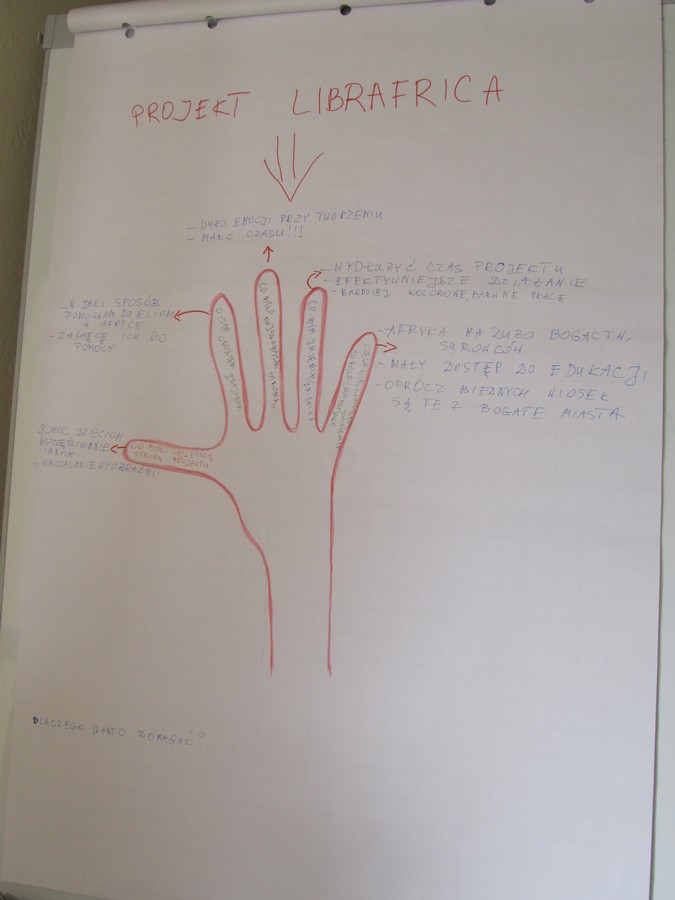 PROJEKT LIBRAFRICA
- DUŻO EMOCJI PRZY TWORZENIU
- MAŁO CZASU!!!
- WYDŁUŻYĆ CZAS PROJEKTU
- EFEKTYWNIEJSZE DZIAŁANIE
- BARDZIEJ KOLOROWE, BARWNE PRACE
- W JAKI SPOSÓB
POMOGŁAM DZIECIOM
W AFRYCE
- ZACHĘCĘ ICH DO
POMOCY
- AFRYKA MA DUŻO BOGACTW,
SUROWCÓW
- MAŁY DOSTĘP DO EDUKACJI
- OPRÓCZ BIEDNYCH WIOSEK
SĄ TEŻ BOGATE MIASTA
POMOC DZIECIOM
USZCZĘŚLIWIANIE
INNYCH
- UBOGACANIE WYOBRAŹNI
CO BYŁO NAJLEPSZĄ
STRONĄ PROJEKTU
DLACZEGO WARTO POMAGAĆ?